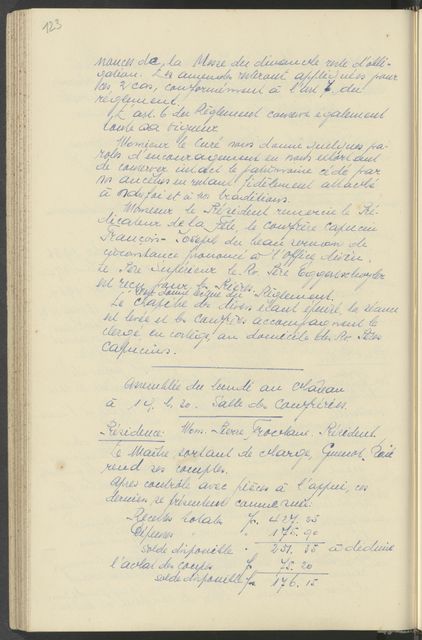 123
nances de la Messe du dimanche reste d'obli-
gation. Les amendes resteront appliquées pour
les 2 cas, conformément à l'art. 7. du
règlement.
L'art. 6 du Règlement conserve également
toute sa vigueur.
Monsieur le Curé nous donne quelques pa-
roles d'encouragement en nous exhortant
de conserver intact le patrimoine cédé par
nos ancêtres en restant fidèlement attaché
à notre foi et à nos traditions.
Monsieur le Président remercie le Pré-
dicateur de la fête le confrère capucin
François-Joseph du beau sermon de
circonstance prononcé à l'office divin.
Le Père Supérieur le Rv. Père
est reçu pour les Pères.
Est donné lecture du Règlement.
Le chapitre des divers étant épuisé, la séance
est levée et les Confrères accompagnent le
clergé en cortège, au domicile des Rv. Pères
Capucins.
Assemblée du lundi au château
à 14 h. 20. Salle des Confréries.
Présidence: Mons. Pierre, Président.
Le Maître sortant de charge,
rend ses comptes.
Après contrôle avec pièces à l'appui, ces
derniers se présentent comme suit:
Recettes totales fr. 427. 25
Dépenses " 175. 90
solde disponible " 251. 35 à déduire
l'achat des coupes fr. 75. 20
solde disponible fr. 176. 15